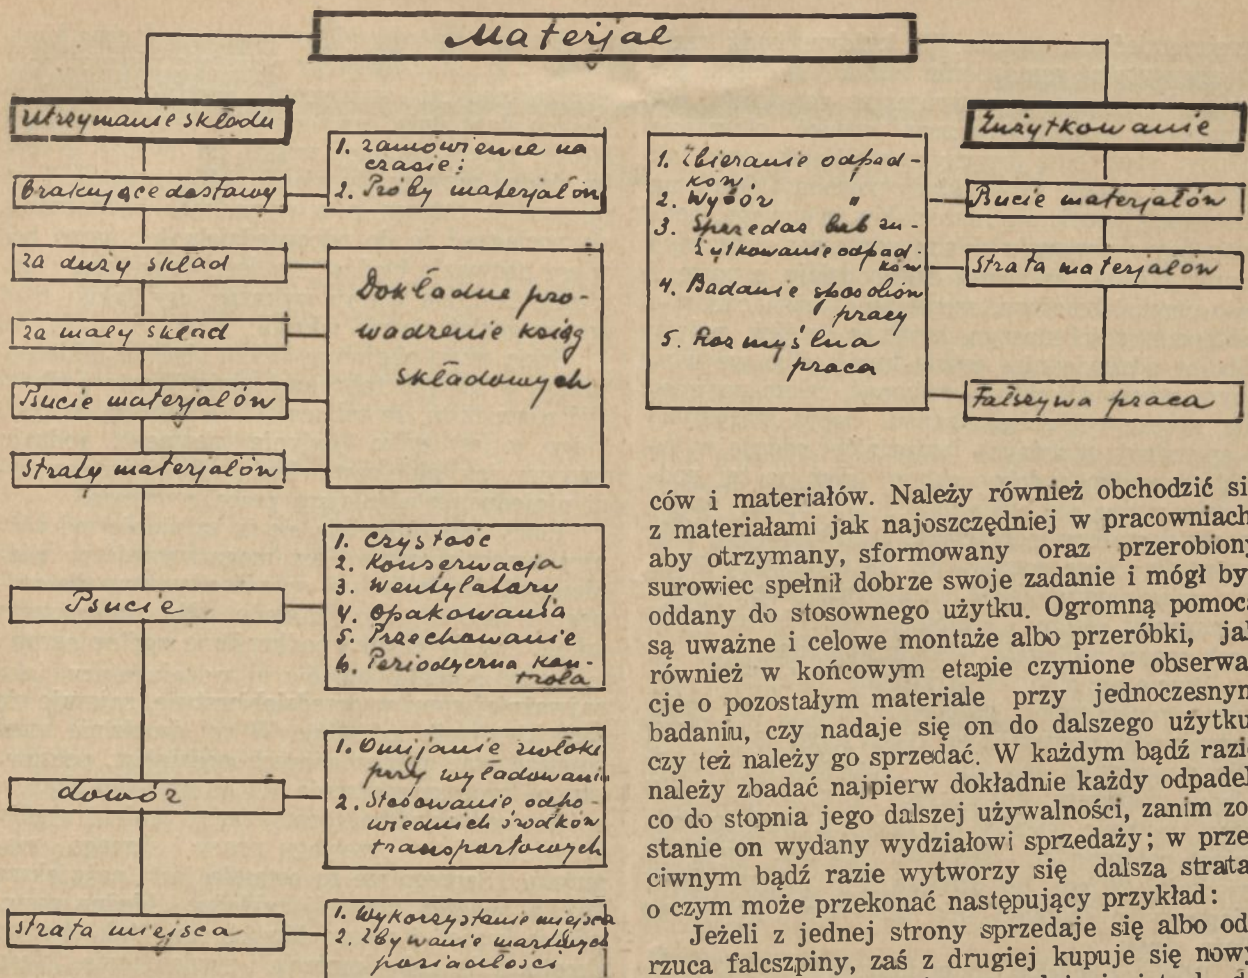 Materjał
Utrzymanie składu
brakujące dostawy
za duży skład
za mały skład
Psucie materjałów
Straty materjałów
Psucie
dowóz
strata miejsca
1. zamówienie na
czasie:
2. Próby materjałów
Dokładne pro-
wadzenie ksiąg
składowych
1. Czystość
2. Konserwacja
3. Wentylatory
4. Opakowania
5. Przechowanie
6. Periodyczna kon-
trola
1. Omijanie zwłoki
przy wyładowaniu
2. Stosowanie odpo-
wiednich środków
transportowych
1. Wykorzystanie miejsca
2. Zbywanie martwych
posiadłości
1. Zbieranie odpad-
ków,
2. Wybór "
3. Sprzedaż lub zu-
żytkowanie odpad-
ków
4. Badanie sposobów
pracy
5. Rozmyślna
praca
Zużytkowanie
Psucie materjałów
Strata materjałów
Fałszywa praca
ców i materiałów. Należy również obchodzić si
z materiałami jak najoszczędniej w pracowniach
aby otrzymany, sformowany oraz przerobiony
surowiec spełnił dobrze swoje zadanie i mógł by
oddany do stosownego użytku. Ogromną pomocą
są uważne i celowe montaże albo przeróbki, jak
również w końcowym etapie czynione obserwa
cje o pozostałym materiale przy jednoczesnym
badaniu, czy nadaje się on do dalszego użytku
czy też należy go sprzedać. W każdym bądź razie
należy zbadać najpierw dokładnie każdy odpadek
co do stopnia jego dalszej używalności, zanim zo
stanie on wydany wydziałowi sprzedaży; w prze
ciwnym bądź razie wytworzy się dalsza strata
o czym może przekonać następujący przykład:
Jeżeli z jednej strony sprzedaje się albo od
rzuca falcszpiny, zaś z drugiej kupuje się nowy